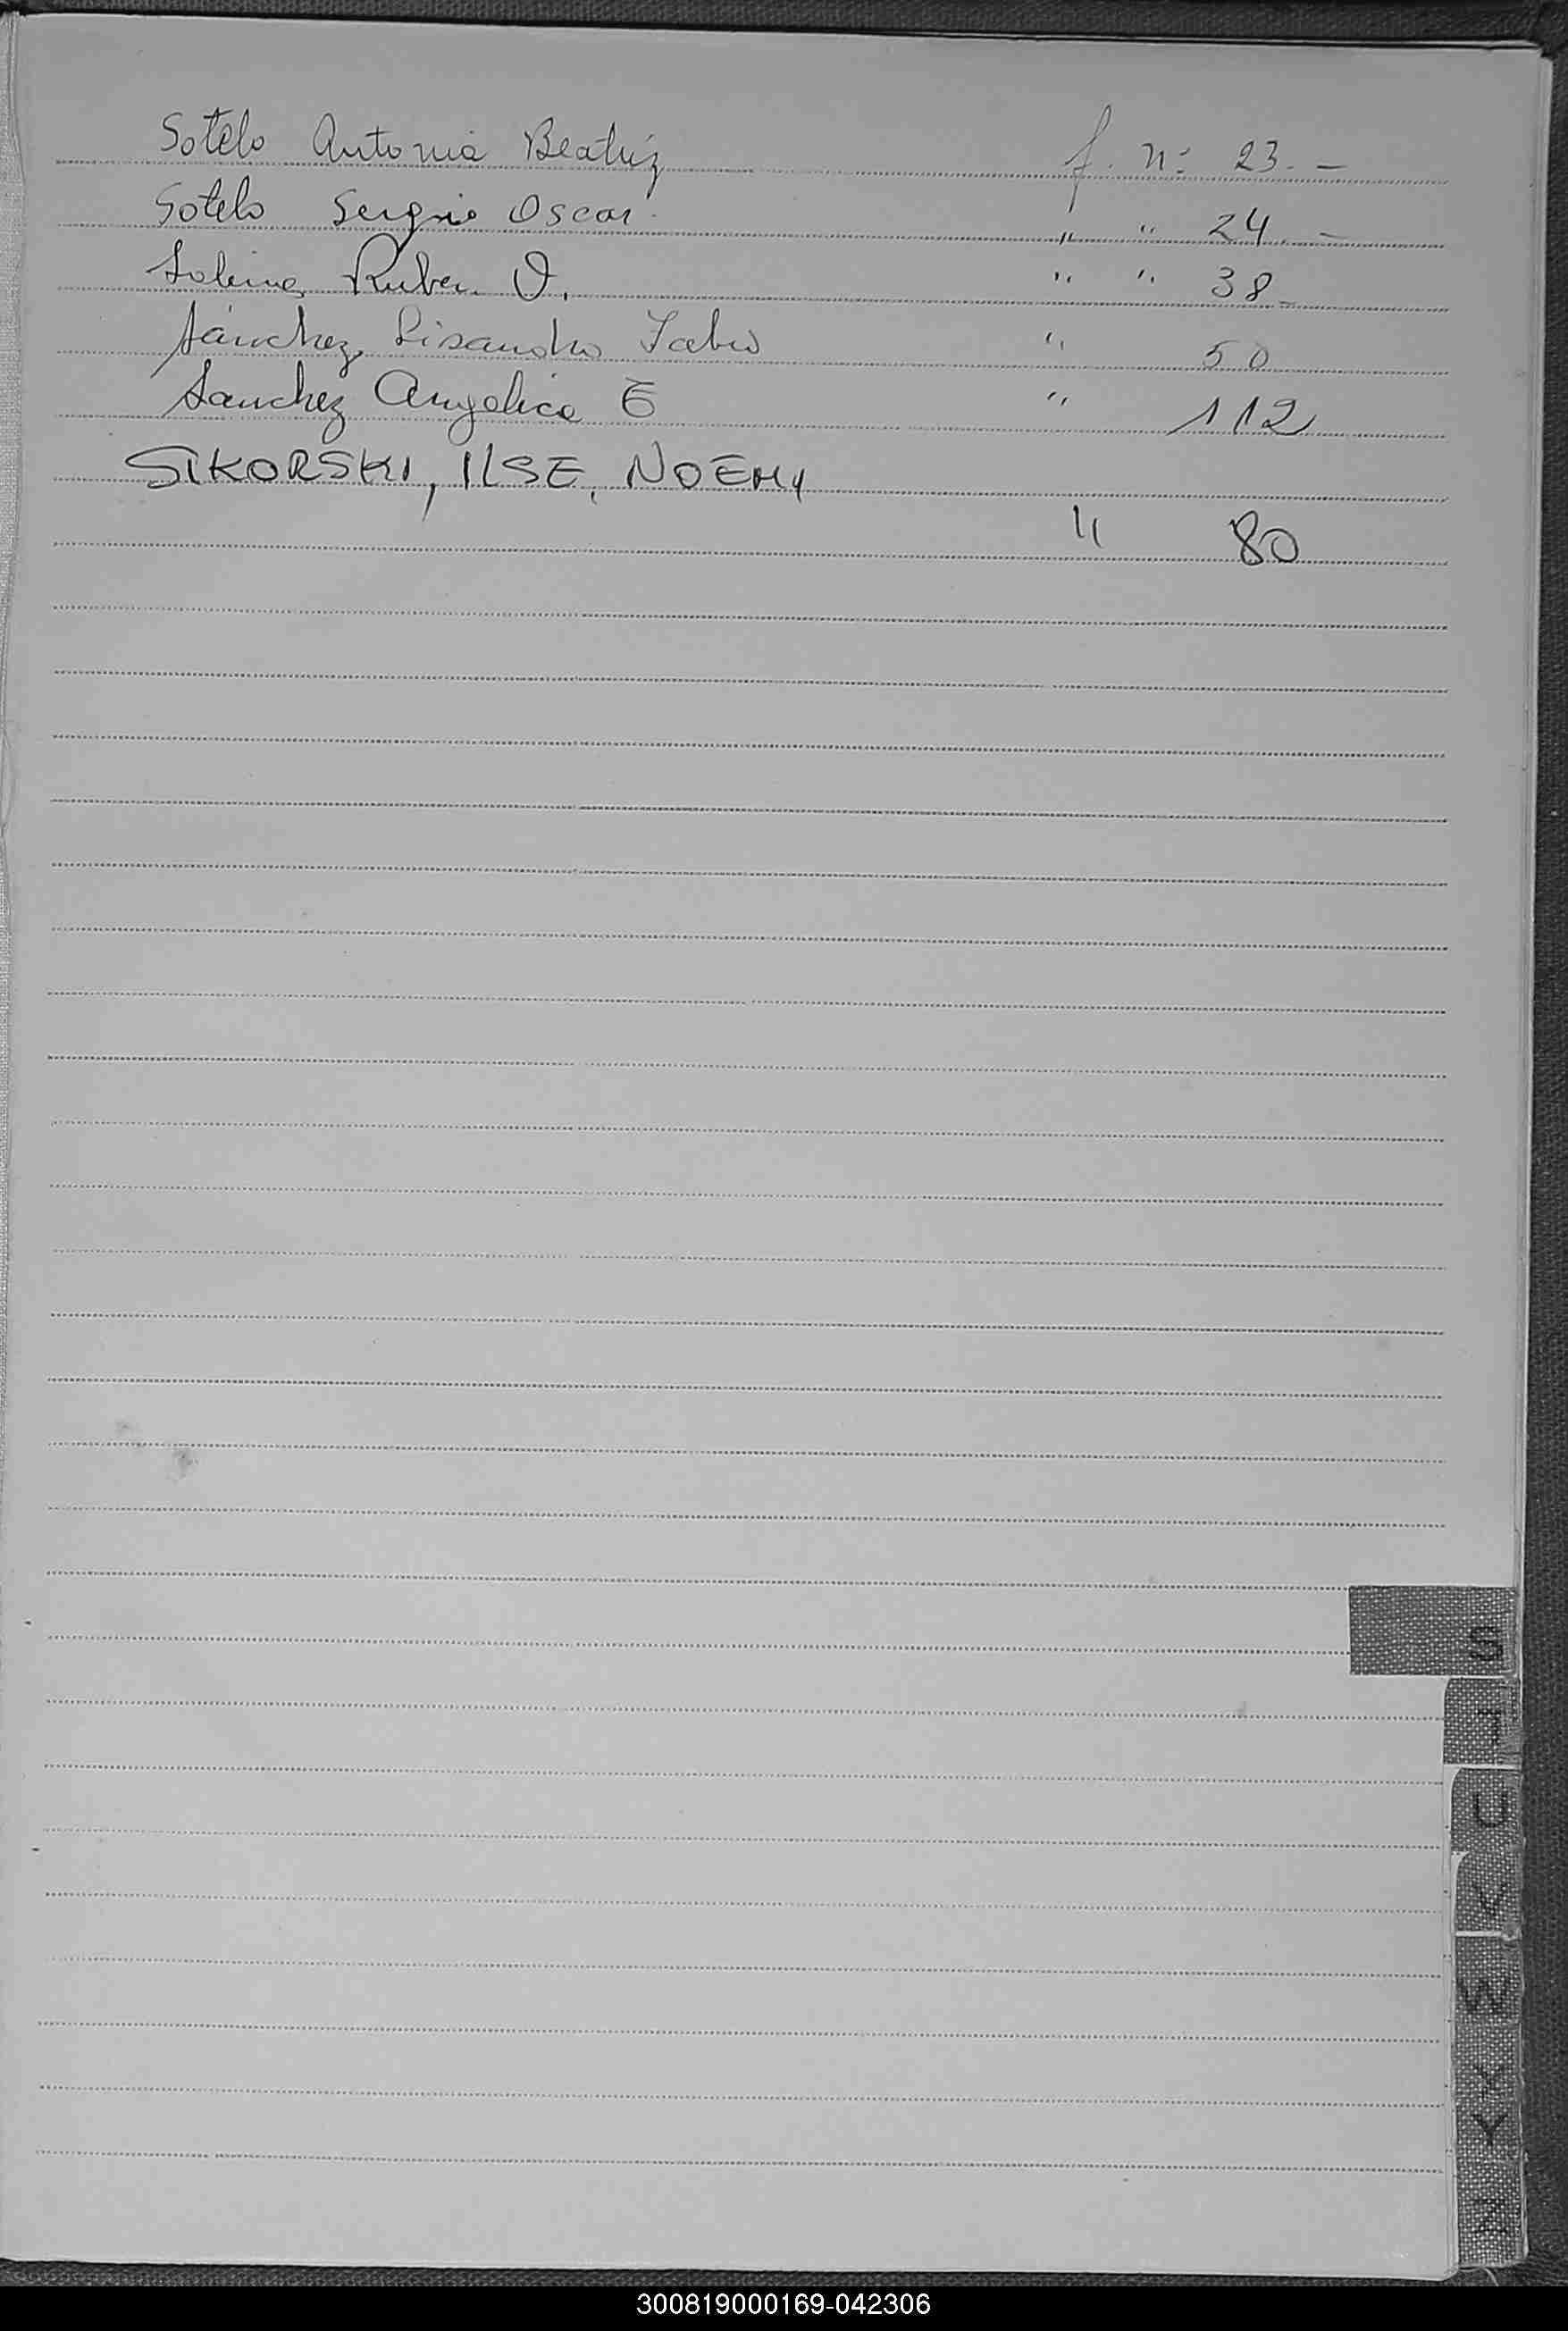 Sotelo Antonia Beatriz f. nº 23. –
Sotelo Sergio Oscar. " " 24. –
Ruben O. " " 38 –
Sánchez, Lisandro " 50
Sanchez Angelica E " 112
SIKORSKI, ILSE, NOEMY
" 80
S
T
U
V
W
X
Y
Z
300819000169-042306